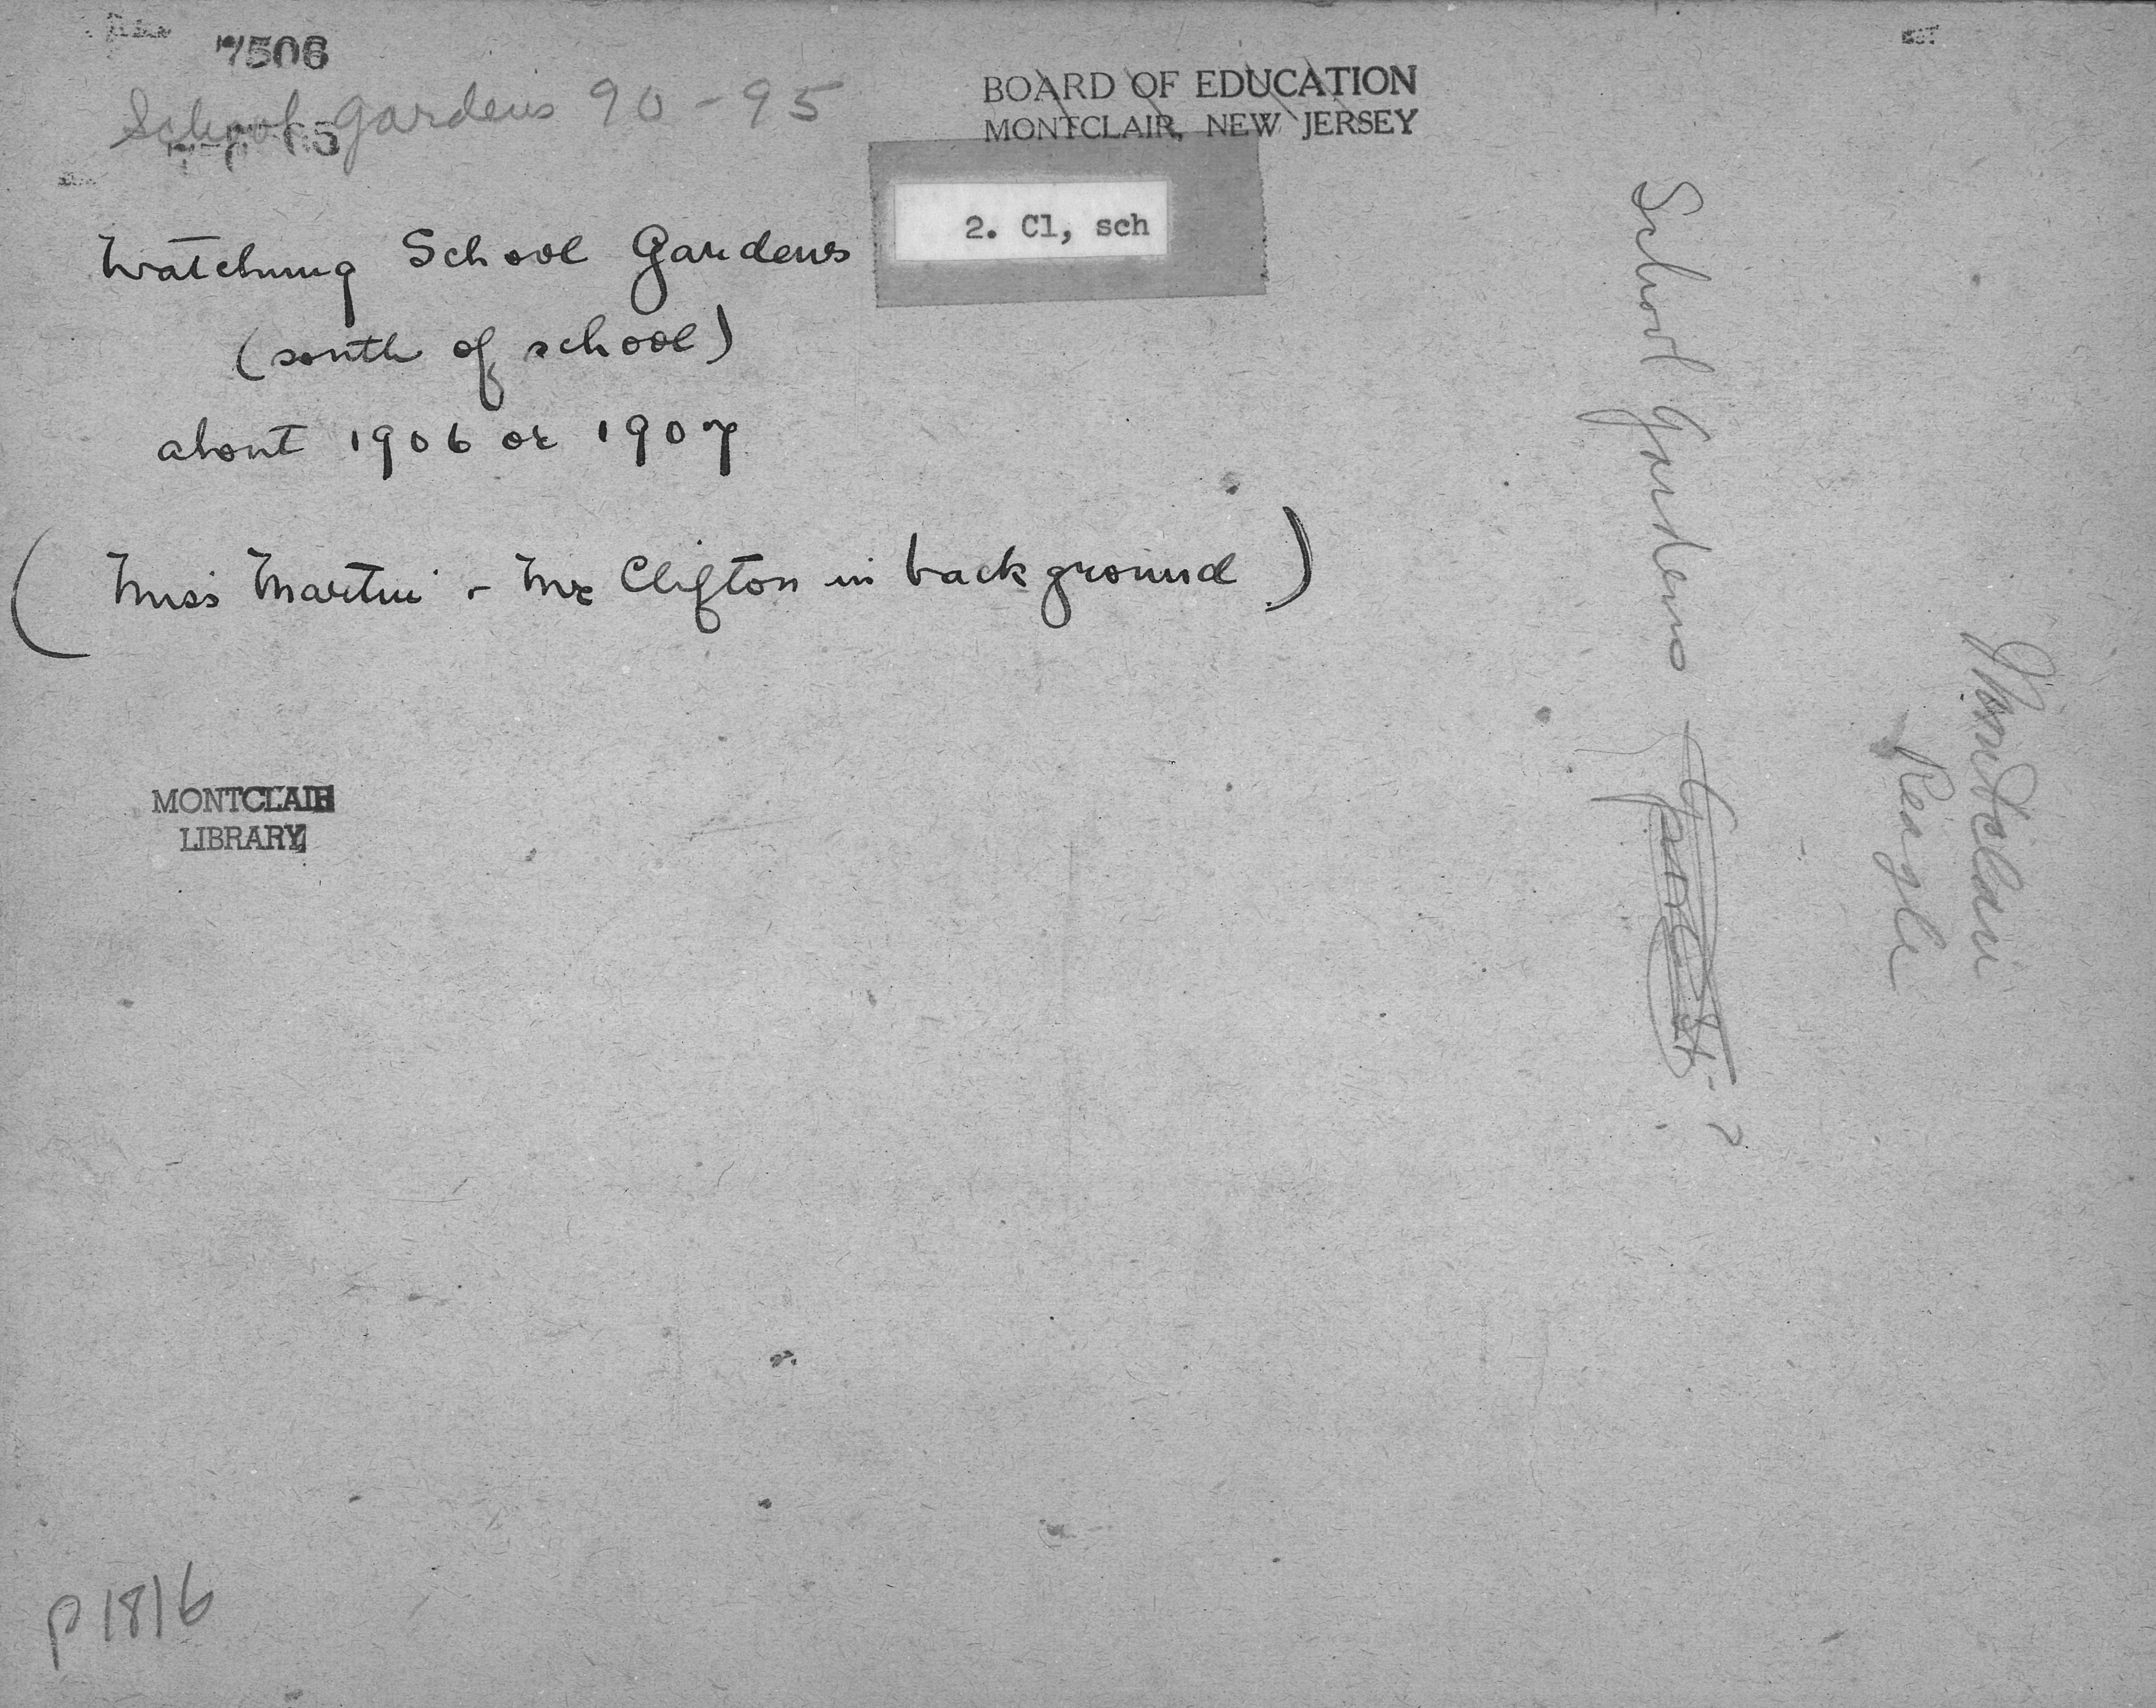 7506
School Gardens 90-95
BOARD OF EDUCATION
MONTCLAIR, NEW JERSEY
2. Cl, sch
Watchung School Gardens
(south of school)
about 1906 or 1907
(Miss Martin - Mr Clifton in background)
MONTCLAIR
LIBRARY
School Gardens
Montclair
Reagle
P1816